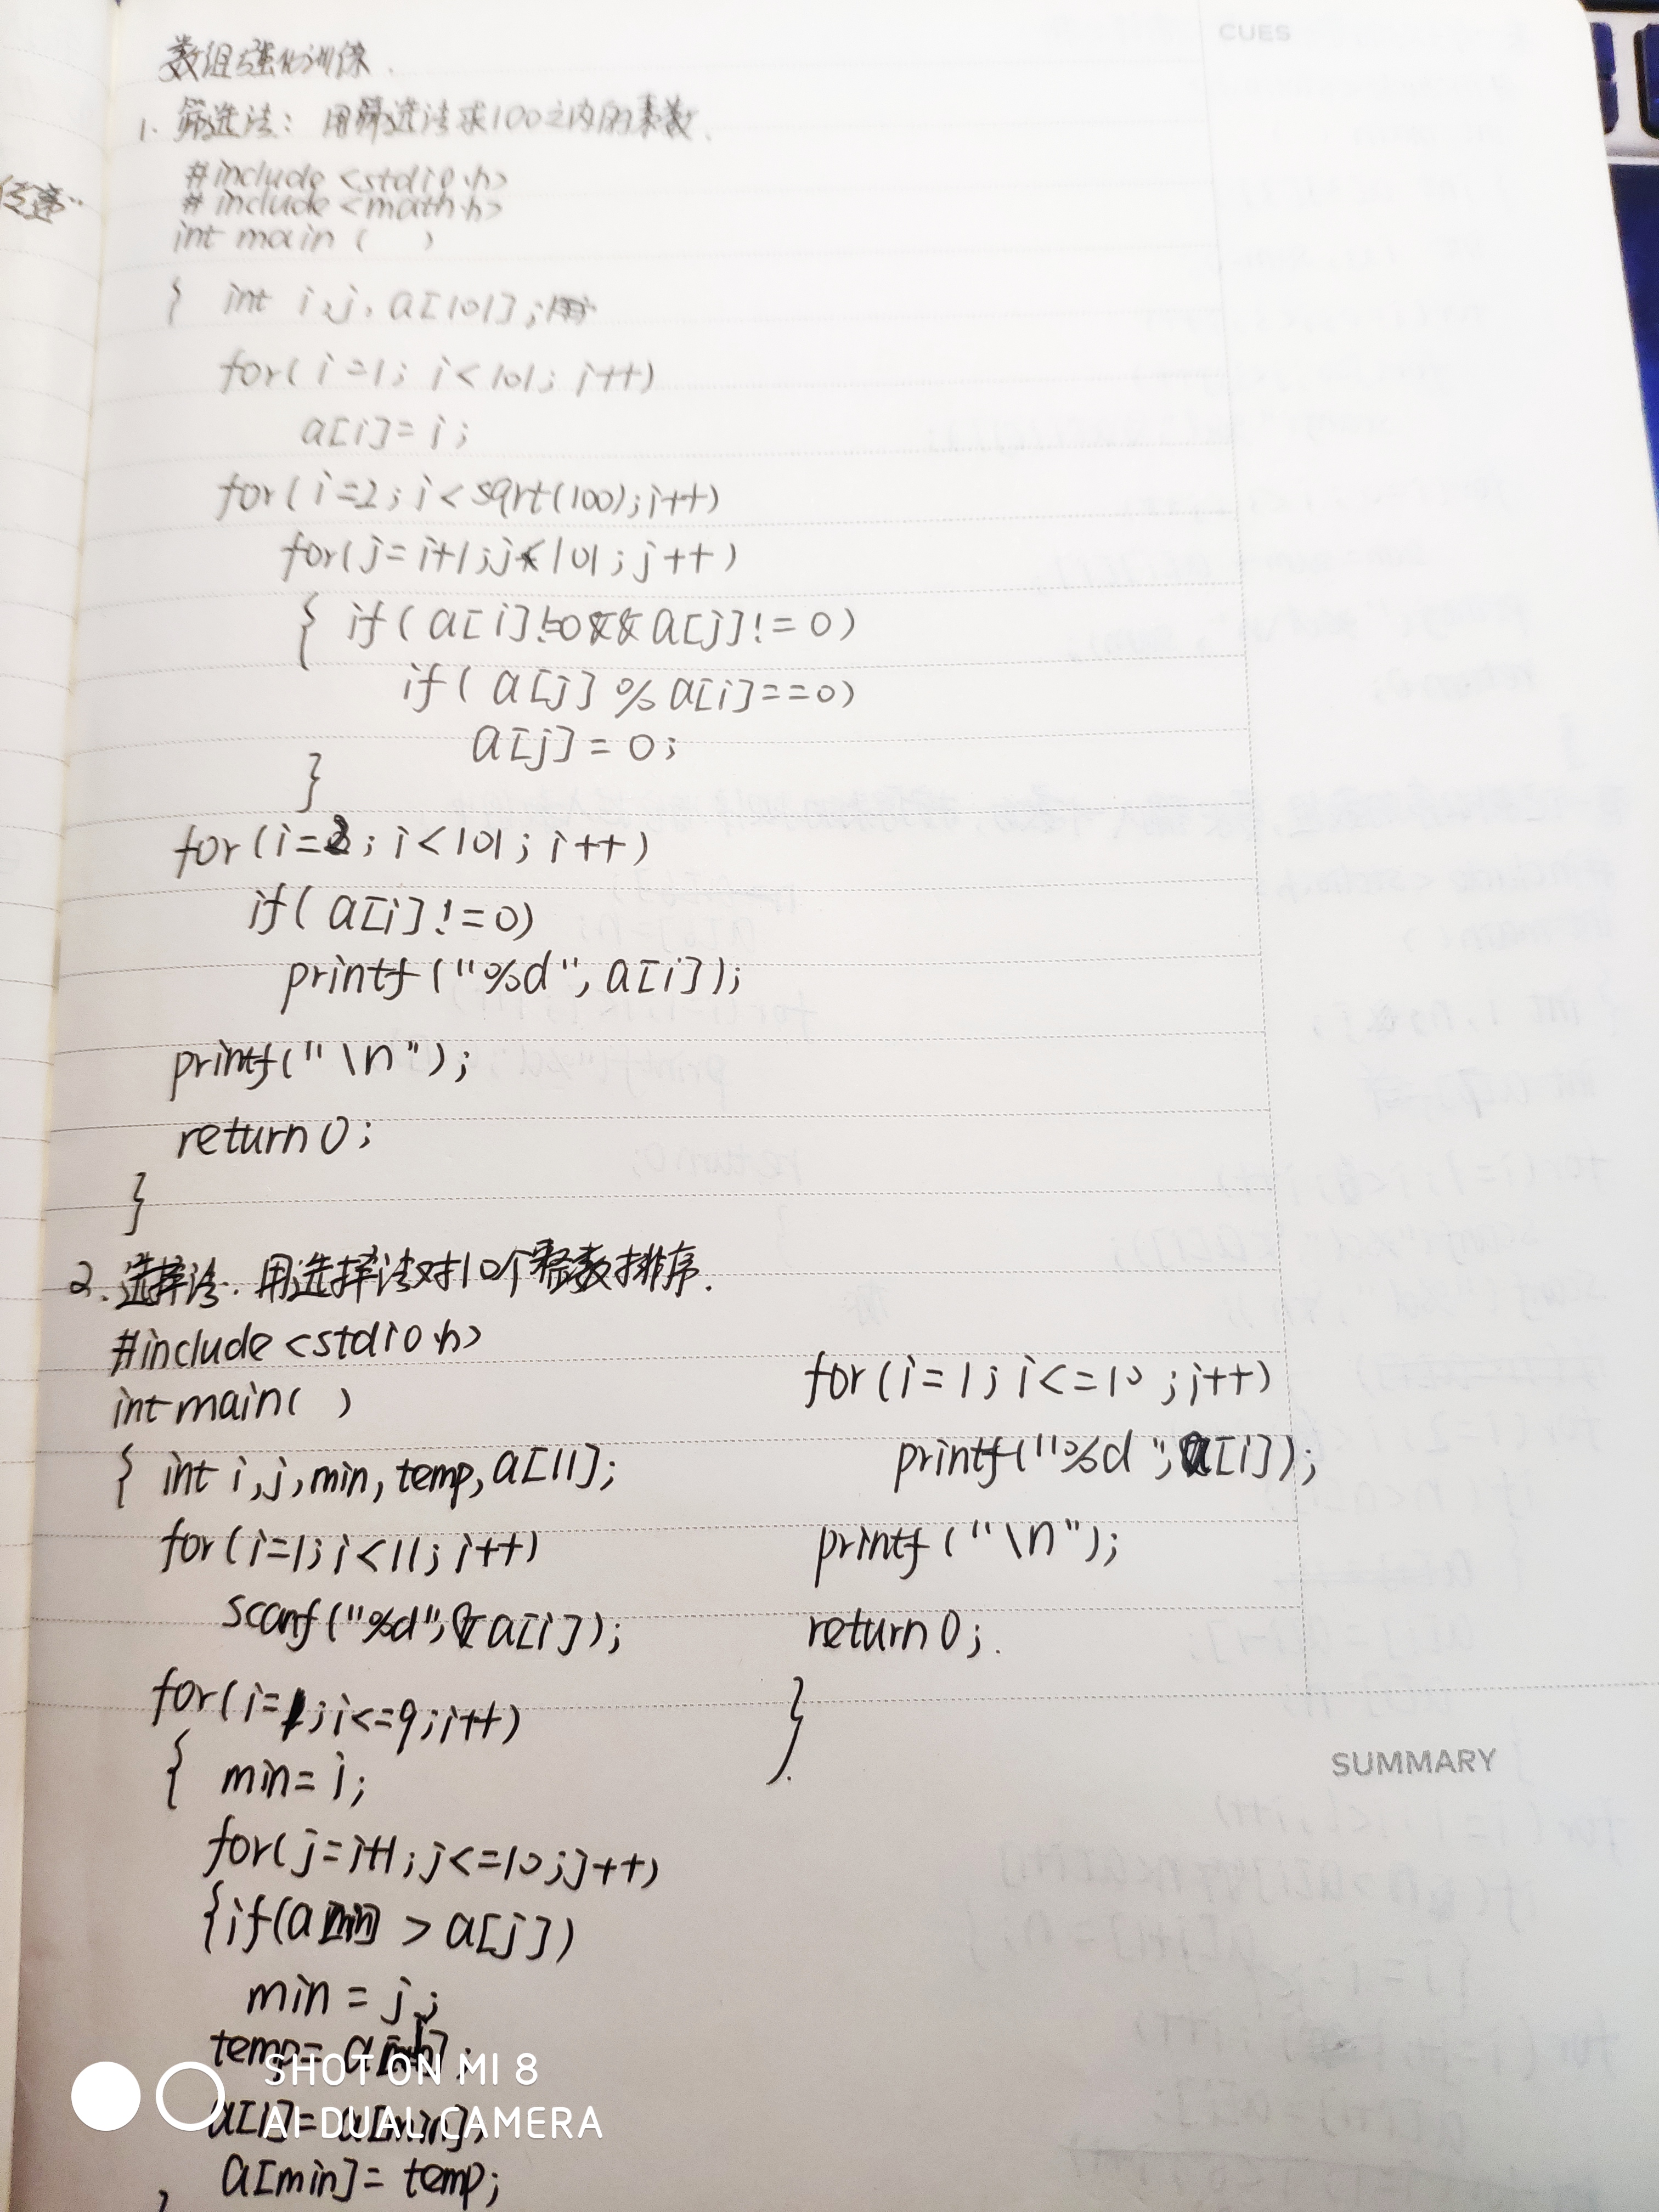 CUES
数组强化训练.
1. 筛选法: 用筛选法求100之内的素数.
#include <stdio.h>
# include <math.h>
int main ( )
{ int i,j, a[101];
for( i=1; i<101; i++)
a[i]= i;
for( i=2; i< sqrt(100); i++)
for(j= i+1; j<101; j++)
{ if( a[i]!=0&& a[j]!=0)
if( a[j] % a[i]==0)
a[j] = 0;
}
for (i=2; i<101; i++)
if( a[i]!=0)
printf ("%d", a[i]);
printf("\n");
return 0;
}
2. 选择法. 用选择法对10个整数排序.
#include <stdio.h>
int main( )
{ int i,j,min, temp, a[11];
for(i=1; i<11; i++)
scanf("%d",&a[i]);
for(i=1; i<=9; i++)
{ min= i;
for(j=i+1; j<=10; j++)
{if(a[min] > a[j])
min = j;
temp= a[ ];
a[i]= a[min];
a[min]= temp;
for (i=1; i<=10 ; i++)
printf("%d",a[i]);
printf ("\n");
return 0;.
}
SUMMARY
SHOT ON MI 8
AI DUAL CAMERA